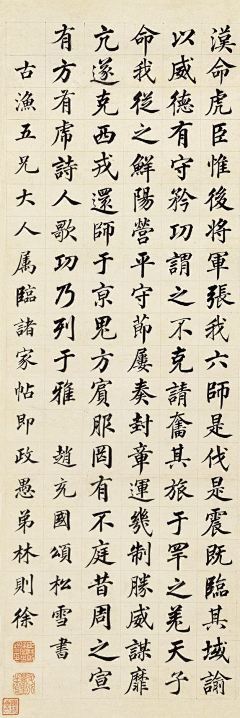 漢命虎臣惟後将軍張我六師是伐是震既臨其域諭
以威德有守矜功謂之不克請奮其旅于罕之羌天子
命我從之鮮陽營平守節屢奏封章運幾制勝威謀靡
亢遂克西戎還師于京鬼方賓服罔有不庭昔周之宣
有方有虎詩人歌功乃列于雅　趙充國頌松雪書
古漁五兄大人属臨諸家帖即政愚弟林則徐